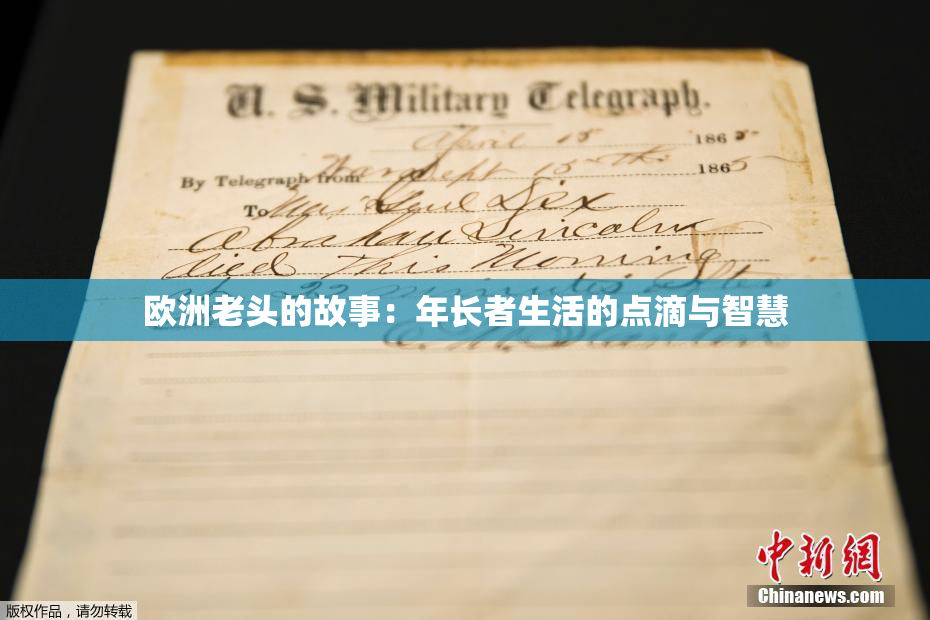 U. S. Military Telegraph.
April 15 1865
By Telegraph from War Dept 15th 1865
To Maj Genl Dix
Abraham Lincoln
died This Morning
at 22 minutes after
欧洲老头的故事：年长者生活的点滴与智慧
E. M. Stanton
中新網
Chinanews.com
版权作品，请勿转载